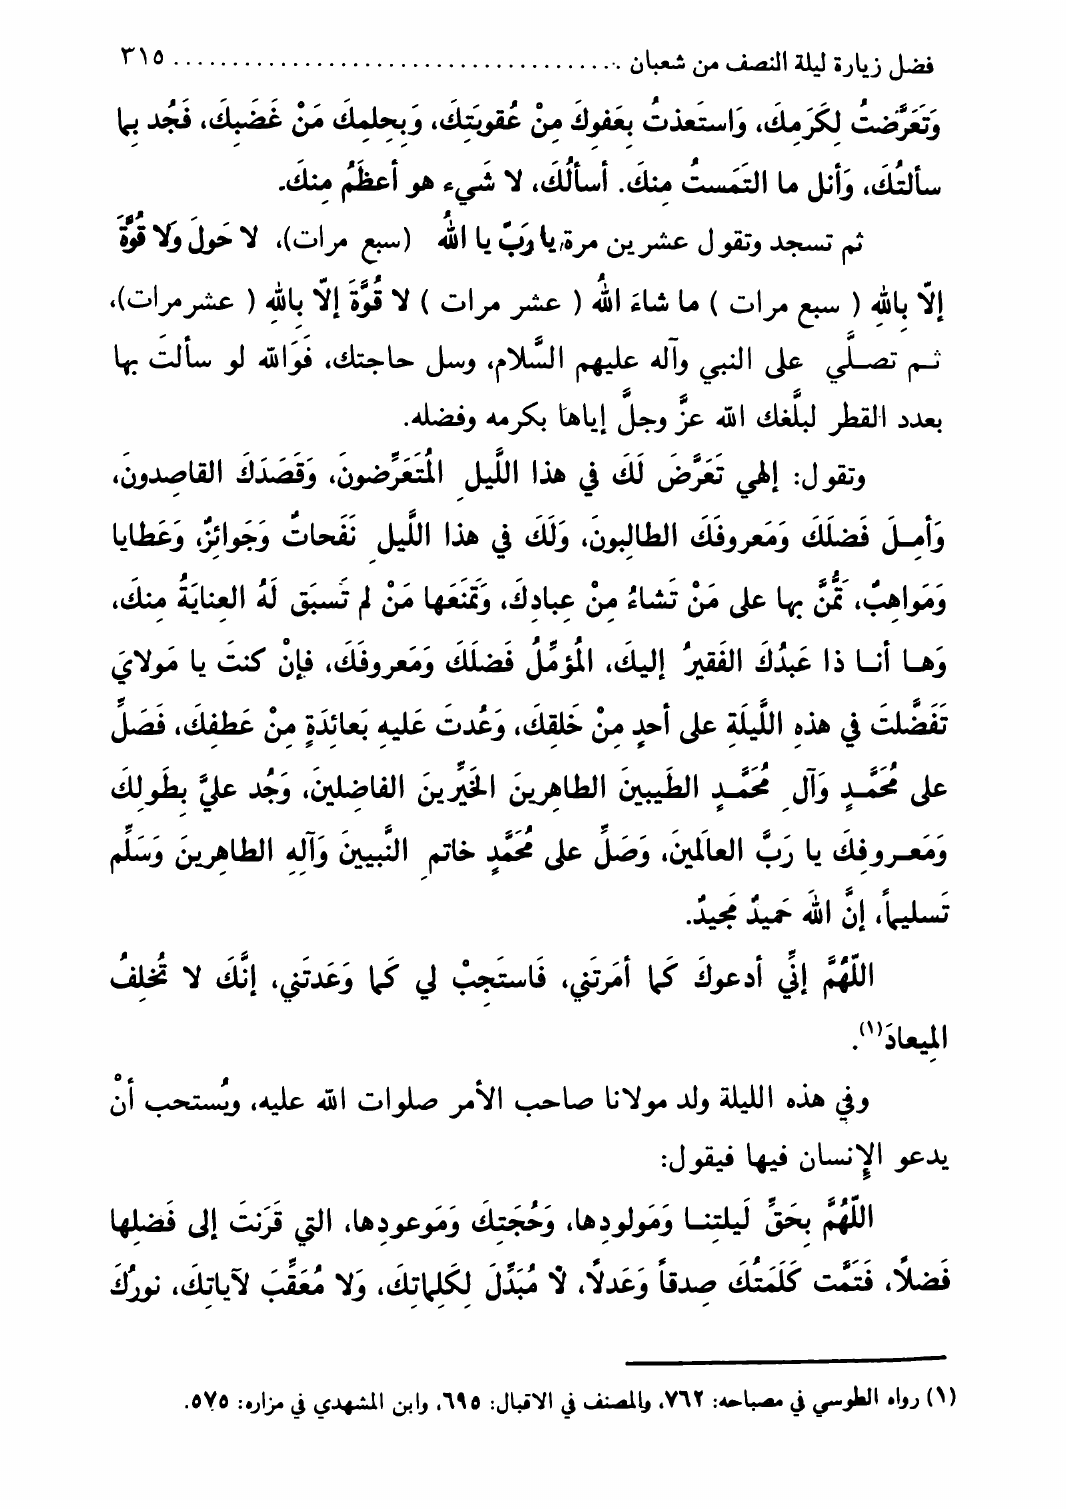 فضل زيارة ليلة النصف من شعبان ..................................... ٣١٥
وَتَعَرَّضتُ لِكَرَمِكَ، وَاستَعذتُ بِعَفوِكَ مِنْ عُقوبَتِكَ، وَبِحِلمِكَ مَنْ غَضَبِكَ، فَجُد بِما
سألتُكَ، وَأنل ما التَمَستُ مِنكَ. أسألُكَ، لا شَيء هو أعظَمُ مِنكَ.
ثم تسجد وتقول عشرين مرة، يا رَبّ يا اللهُ (سبع مرات)، لا حَولَ وَلا قُوَّةَ
إلّا بِاللهِ ( سبع مرات ) ما شاءَ اللهُ ( عشر مرات ) لا قُوَّةَ إلّا بِاللهِ ( عشرمرات)،
ثـم تصـلَّي على النبي وآله عليهم السَّلام، وسل حاجتك، فَوَالله لو سألتَ بها
بعدد القطر لبلَّغك الله عزَّ وجلَّ إياها بكرمه وفضله.
وتقول: إلهي تَعَرَّضَ لَكَ في هذا اللَّيلِ المُتَعَرِّضونَ، وَقَصَدَكَ القاصِدونَ،
وَأمِـلَ فَضلَكَ وَمَعروفَكَ الطالِبونَ، وَلَكَ في هذا اللَّيلِ نَفَحاتٌ وَجَوائِزٌ، وَعَطايا
وَمَواهِبٌ، تَمُنَّ بها على مَنْ تَشاءُ مِنْ عِبادِكَ، وَتَمنَعَها مَنْ لم تَسبَق لَهُ العِنايَةُ مِنكَ،
وَهـا أنـا ذا عَبدُكَ الفَقيرُ إليكَ، المُؤمِّلُ فَضلَكَ وَمَعروفَكَ، فإنْ كنتَ يا مَولايَ
تَفَضَّلتَ في هذهِ اللَّيلَةِ على أحدٍ مِنْ خَلقِكَ، وَعُدتَ عَليهِ بَعائِدَةٍ مِنْ عَطفِكَ، فَصَلِّ
على مُحَمَّـدٍ وَآلِ مُحَمَّـدٍ الطَيبينَ الطاهِرينَ الخَيِّرينَ الفاضِلينَ، وَجُد عليَّ بِطَولِكَ
وَمَعـروفِكَ يا رَبَّ العالَمينَ، وَصَلِّ على مُحَمَّدٍ خاتمِ النَّبيينَ وَآلِهِ الطاهِرينَ وَسَلِّم
تَسليماً، إنَّ اللهَ حَميدٌ مَجيدٌ.
اللّهُمَّ إنِّي أدعوكَ كَما أمَرتَني، فَاستَجِبْ لي كَما وَعَدتَني، إنَّكَ لا تُخلِفُ
المِيعادَ(١).
وفي هذه الليلة ولد مولانا صاحب الأمر صلوات الله عليه، ويُستحب أنْ
يدعو الإنسان فيها فيقول:
اللّهُمَّ بِحَقِّ لَيلتِنـا وَمَولودِها، وَحُجَتِكَ وَمَوعودِها، التي قَرَنتَ إلى فَضلِها
فَضلاً، فَتَمَّت كَلَمَتُكَ صِدقاً وَعَدلًا، لا مُبَدِّلَ لِكَلِماتِكَ، وَلا مُعَقِّبَ لآياتِكَ، نورُكَ
(١) رواه الطوسي في مصباحه: ٧٦٢، والمصنف في الاقبال: ٦٩٥، وابن المشهدي في مزاره: ٥٧٥.